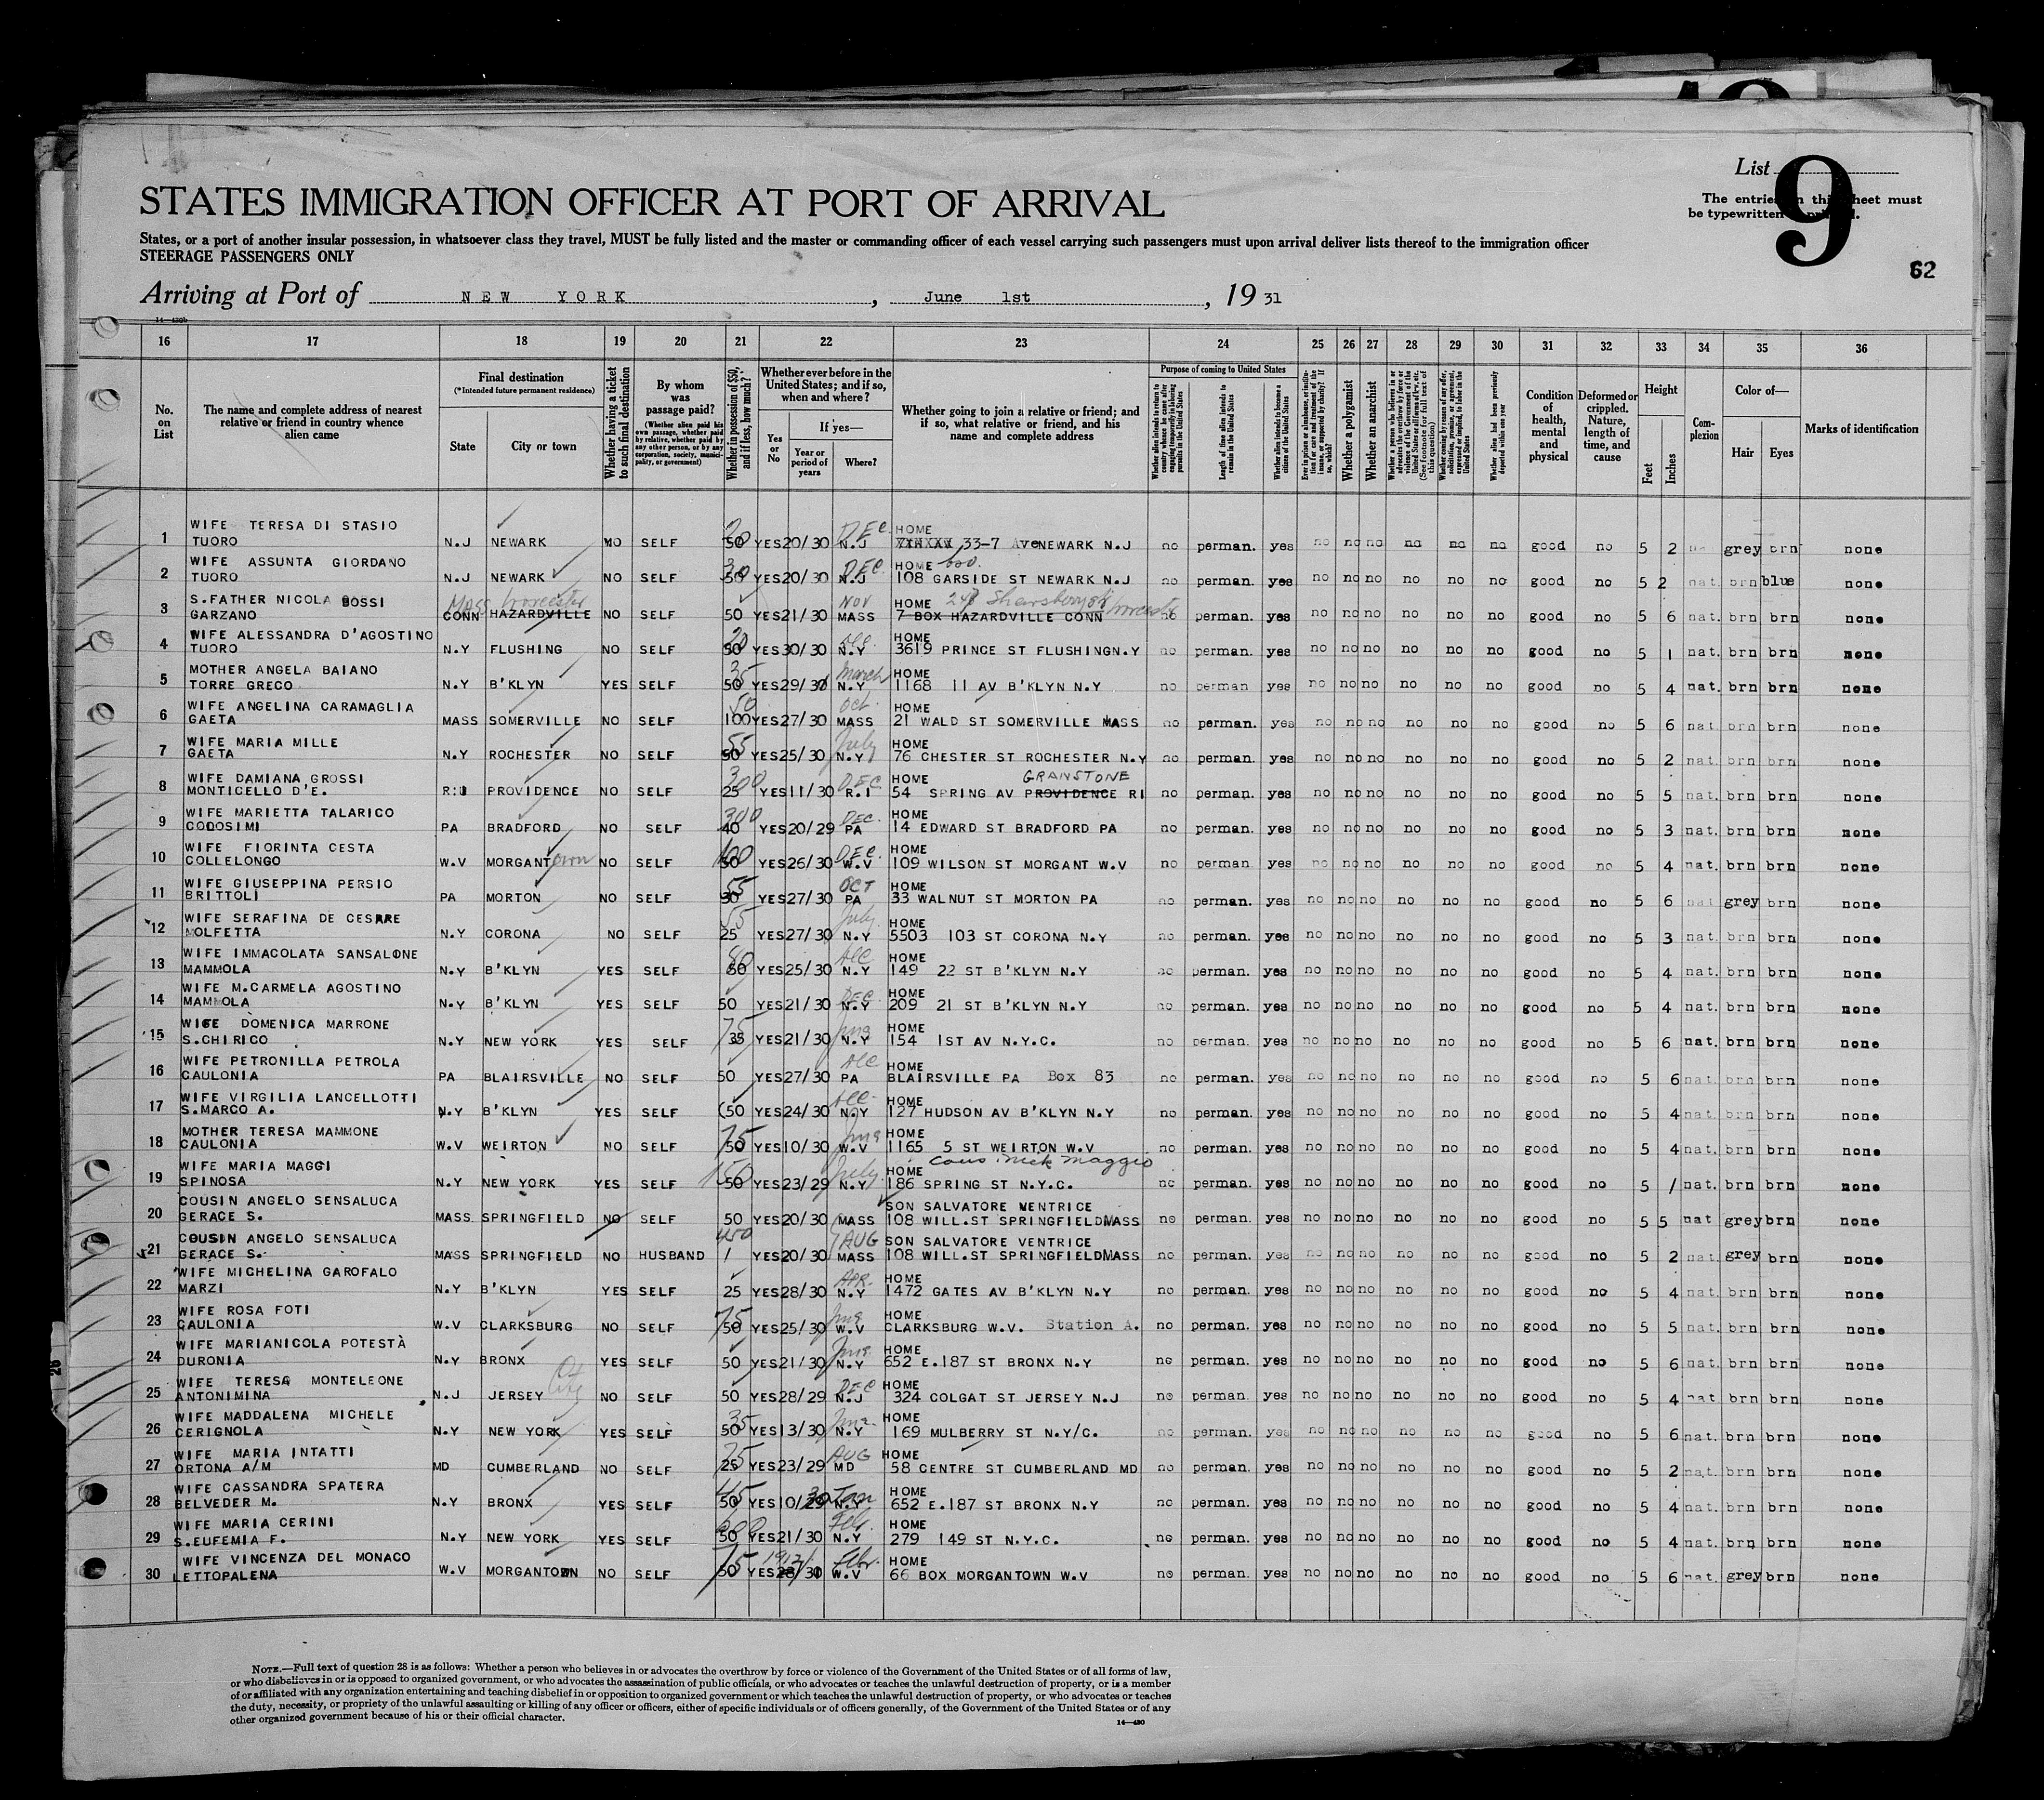 List 9
The entries on this sheet must
be typewritten or printed.
62
STATES IMMIGRATION OFFICER AT PORT OF ARRIVAL
States, or a port of another insular possession, in whatsoever class they travel, MUST be fully listed and the master or commanding officer of each vessel carrying such passengers must upon arrival deliver lists thereof to the immigration officer
STEERAGE PASSENGERS ONLY
Arriving at Port of NEW YORK, June 1st, 1931
14—430b
16 17 18 19 20 21 22 23 24 25 26 27 28 29 30 31 32 33 34 35 36
No. on List
The name and complete address of nearest relative or friend in country whence alien came
Final destination
(*Intended future permanent residence)
State
City or town
Whether having a ticket to such final destination
By whom was passage paid?
(Whether alien paid his own passage, whether paid by relative, whether paid by any other person, or by any corporation, society, municipality, or government)
Whether in possession of $50, and if less, how much?
Whether ever before in the United States; and if so, when and where?
Yes or No
If yes—
Year or period of years
Where?
Whether going to join a relative or friend; and if so, what relative or friend, and his name and complete address
Purpose of coming to United States
Length of time alien intends to remain in the United States
Whether alien intends to become a citizen of the United States
Whether a polygamist
Whether an anarchist
Condition of health, mental and physical
Deformed or crippled. Nature, length of time, and cause
Height
Feet
Inches
Complexion
Color of—
Hair
Eyes
Marks of identification
1 WIFE TERESA DI STASIO TUORO N.J NEWARK NO SELF 50 YES 20/30 DEC. N.J HOME 33-7 Ave NEWARK N.J no perman. yes no no no no no no good no 5 2 grey brn none
2 WIFE ASSUNTA GIORDANO TUORO N.J NEWARK NO SELF 50 YES 20/30 DEC. N.J HOME 108 GARSIDE ST NEWARK N.J no perman. yes no no no no no no good no 5 2 nat. brn blue none
3 S.FATHER NICOLA BOSSI GARZANO MASS Worcester CONN HAZARDVILLE NO SELF 50 YES 21/30 NOV MASS HOME 7 BOX HAZARDVILLE CONN Worcester no perman. yes no no no no no no good no 5 6 nat. brn brn none
4 WIFE ALESSANDRA D'AGOSTINO TUORO N.Y FLUSHING NO SELF 50 YES 30/30 N.Y HOME 3619 PRINCE ST FLUSHING N.Y no perman. yes no no no no no no good no 5 1 nat. brn brn none
5 MOTHER ANGELA BAIANO TORRE GRECO N.Y B'KLYN YES SELF 35 50 YES 29/30 March N.Y HOME 1168 11 AV B'KLYN N.Y no perman yes no no no no no no good no 5 4 nat. brn brn none
6 WIFE ANGELINA CARAMAGLIA GAETA MASS SOMERVILLE NO SELF 50 100 YES 27/30 Oct. MASS HOME 21 WALD ST SOMERVILLE MASS no perman. yes no no no no no no good no 5 6 nat brn brn none
7 WIFE MARIA MILLE GAETA N.Y ROCHESTER NO SELF 55 50 YES 25/30 July N.Y HOME 76 CHESTER ST ROCHESTER N.Y no perman. yes no no no no no no good no 5 2 nat. brn brn none
8 WIFE DAMIANA GROSSI MONTICELLO D'E. R:I PROVIDENCE NO SELF 300 25 YES 11/30 DEC R.I HOME GRANSTONE 54 SPRING AV PROVIDENCE RI no perman. yes no no no no no no good no 5 5 nat. brn brn none
9 WIFE MARIETTA TALARICO COLOSIMI PA BRADFORD NO SELF 300 40 YES 20/29 DEC. PA HOME 14 EDWARD ST BRADFORD PA no perman. yes no no no no no no good no 5 3 nat. brn brn none
10 WIFE FIORINTA CESTA COLLELONGO W.V MORGANTown NO SELF 100 50 YES 26/30 DEC. W.V HOME 109 WILSON ST MORGANT W.V no perman yes no no no no no no good no 5 4 nat. brn brn none
11 WIFE GIUSEPPINA PERSIO BRITTOLI PA MORTON NO SELF 55 30 YES 27/30 OCT PA HOME 33 WALNUT ST MORTON PA no perman. yes no no no no no no good no 5 6 nat grey brn none
12 WIFE SERAFINA DE CESARE MOLFETTA N.Y CORONA NO SELF 55 25 YES 27/30 July N.Y HOME 5503 103 ST CORONA N.Y no perman. yes no no no no no no good no 5 3 nat. brn brn none
13 WIFE IMMACOLATA SANSALONE MAMMOLA N.Y B'KLYN YES SELF 50 YES 25/30 Dec N.Y HOME 149 22 ST B'KLYN N.Y no perman. yes no no no no no no good no 5 4 nat. brn brn none
14 WIFE M.CARMELA AGOSTINO MAMMOLA N.Y B'KLYN YES SELF 50 YES 21/30 DEC. N.Y HOME 209 21 ST B'KLYN N.Y no perman. yes no no no no no no good no 5 4 nat. brn brn none
15 WIFE DOMENICA MARRONE S.CHIRICO N.Y NEW YORK YES SELF 75 35 YES 21/30 N.Y HOME 154 1ST AV N.Y.C. no perman. yes no no no no no no good no 5 6 nat. brn brn none
16 WIFE PETRONILLA PETROLA CAULONIA PA BLAIRSVILLE NO SELF 50 YES 27/30 Dec PA HOME BLAIRSVILLE PA Box 83 no perman. yes no no no no no no good no 5 6 nat. brn brn none
17 WIFE VIRGILIA LANCELLOTTI S.MARCO A. N.Y B'KLYN YES SELF 50 YES 24/30 Dec. N.Y HOME 127 HUDSON AV B'KLYN N.Y no perman. yes no no no no no no good no 5 4 nat. brn brn none
18 MOTHER TERESA MAMMONE CAULONIA W.V WEIRTON NO SELF 75 50 YES 10/30 W.V HOME 1165 5 ST WEIRTON W.V no perman. yes no no no no no no good no 5 4 nat. brn brn none
19 WIFE MARIA MAGGI SPINOSA N.Y NEW YORK YES SELF 150 50 YES 23/29 July N.Y HOME cous. Nick Maggio 186 SPRING ST N.Y.C. no perman. yes no no no no no no good no 5 / nat. brn brn none
20 COUSIN ANGELO SENSALUCA GERACE S. MASS SPRINGFIELD NO SELF 50 YES 20/30 MASS SON SALVATORE VENTRICE 108 WILL.ST SPRINGFIELD MASS no perman. yes no no no no no no good no 5 5 nat grey brn none
21 COUSIN ANGELO SENSALUCA GERACE S. MASS SPRINGFIELD NO HUSBAND 450 / YES 20/30 AUG MASS SON SALVATORE VENTRICE 108 WILL.ST SPRINGFIELD MASS no perman. yes no no no no no no good no 5 2 nat. grey brn none
22 WIFE MICHELINA GAROFALO MARZI N.Y B'KLYN YES SELF 25 YES 28/30 APR. N.Y HOME 1472 GATES AV B'KLYN N.Y no perman. yes no no no no no no good no 5 4 nat. brn brn none
23 WIFE ROSA FOTI CAULONIA W.V CLARKSBURG NO SELF 75 50 YES 25/30 W.V HOME CLARKSBURG W.V. Station A. no perman. yes no no no no no no good no 5 5 nat. brn brn none
24 WIFE MARIANICOLA POTESTÀ DURONIA N.Y BRONX YES SELF 50 YES 21/30 N.Y HOME 652 E.187 ST BRONX N.Y no perman. yes no no no no no no good no 5 6 nat. brn brn none
25 WIFE TERESA MONTELEONE ANTONIMINA N.J JERSEY City NO SELF 50 YES 28/29 DEC N.J HOME 324 COLGAT ST JERSEY N.J no perman. yes no no no no no no good no 5 4 nat brn brn none
26 WIFE MADDALENA MICHELE CERIGNOLA N.Y NEW YORK YES SELF 35 50 YES 13/30 N.Y HOME 169 MULBERRY ST N.Y/C. no perman. yes no no no no no no good no 5 6 nat. brn brn none
27 WIFE MARIA INTATTI ORTONA A/M MD CUMBERLAND NO SELF 75 25 YES 23/29 AUG MD HOME 58 CENTRE ST CUMBERLAND MD no perman. yes no no no no no no good no 5 2 nat. brn brn none
28 WIFE CASSANDRA SPATERA BELVEDER M. N.Y BRONX YES SELF 45 50 YES 10/29 30 Jan N.Y HOME 652 E.187 ST BRONX N.Y no perman. yes no no no no no no good no 5 4 nat. brn brn none
29 WIFE MARIA CERINI S.EUFEMIA F. N.Y NEW YORK YES SELF 50 YES 21/30 Feb. N.Y HOME 279 149 ST N.Y.C. no perman. yes no no no no no no good no 5 4 nat. brn brn none
30 WIFE VINCENZA DEL MONACO LETTOPALENA W.V MORGANTOWN NO SELF 75 50 YES Febr. W.V HOME 66 BOX MORGANTOWN W.V no perman. yes no no no no no no good no 5 6 nat. grey brn none
NOTE.—Full text of question 28 is as follows: Whether a person who believes in or advocates the overthrow by force or violence of the Government of the United States or of all forms of law,
or who disbelieves in or is opposed to organized government, or who advocates the assassination of public officials, or who advocates or teaches the unlawful destruction of property, or is a member
of or affiliated with any organization entertaining and teaching disbelief in or opposition to organized government or which teaches the unlawful destruction of property, or who advocates or teaches
the duty, necessity, or propriety of the unlawful assaulting or killing of any officer or officers, either of specific individuals or of officers generally, of the Government of the United States or of any
other organized government because of his or their official character.
14—430